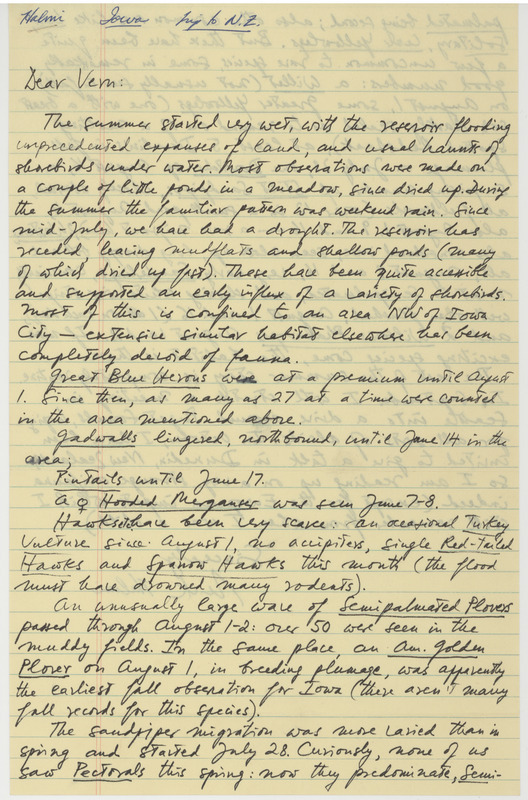 Halmi Iowa Sup to N.I.
Dear Vern:
The summer started very wet, with the reservoir flooding
unprecedented expanses of land, and usual haunts of
shorebirds under water. Most observations were made on
a couple of little ponds in a meadow, since dried up. During
the summer the familiar pattern was weekend rain. Since
mid-July, we have had a drought. The reservoir has
receded, leaving mudflats and shallow ponds (many
of which dried up fast). These have been quite accessible
and supported an early influx of a variety of shorebirds.
Most of this is confined to an area NW of Iowa
City — extensive similar habitat elsewhere has been
completely devoid of fauna.
Great Blue Herons were at a premium until August
1. Since then, as many as 27 at a time were counted
in the area mentioned above.
Gadwalls lingered, northbound, until June 14 in the
area.
Pintails until June 17.
A ♀ Hooded Merganser was seen June 7-8.
Hawks have been very scarce: an ocasional Turkey
Vulture since August 1, no accipiters, single Red-tailed
Hawks and Sparow Hawks this month (the flood
must have drowned many rodents).
An unusually large wave of Semipalmated Plovers
passed through August 1-2: over 50 were seen in the
muddy fields. In the same place, an Am. Golden
Plover on August 1, in breeding plumage, was apparently
the earliest fall observation for Iowa (there aren't many
fall records for this species).
The sandpiper migration was more varied than in
spring and started July 28. Curiously, none of us
saw Pectorals this spring: now they predominate, Semi-